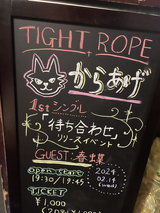 TIGHT ROPE
からあげ
1stシングル
「待ち合わせ」
リリースイベント
GUEST:春蝶
open start
19:30/19:45
2024
02.14
(wed)
TICKET
¥1,000